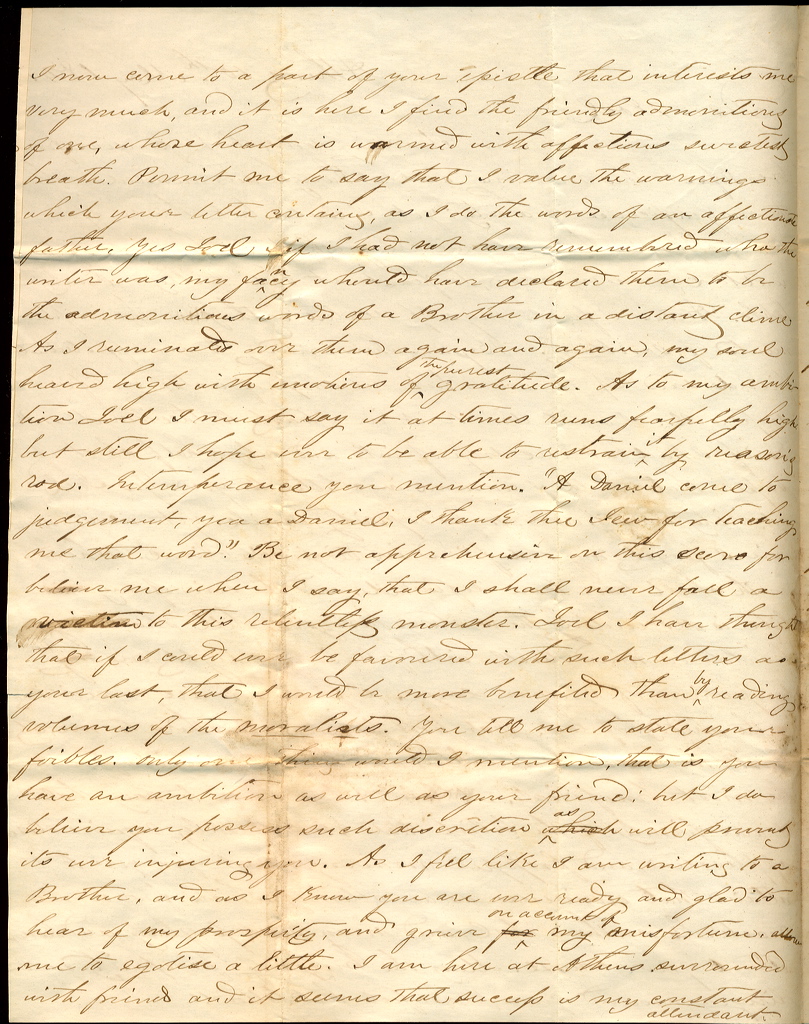 I now come to a part of your epistle that interests me
very much, and it is here I find the friendly admonitions
of one, whose heart is warmed with affections sweetest
breath. Permit me to say that I value the warnings
which your letter contains, as I do the words of an affectionate
father. Yes Joel, if I had not have remembered who the
writer was, my fancy would have declared them to be
the admonitious words of a Brother in a distant clime
As I ruminated over them again and again, my soul
heaved high with emotions of the purest gratitude. As to my ambi-
tion Joel I must say it at times runs fearfully high
but still I hope ever to be able to restrain it by reasons
rod. Intemperance you mention. "A Daniel come to
judgement, yea a Daniel, I thank thee Jew for teaching
me that word." Be not apprehensive on this score for
believe me when I say, that I shall never fall a
victim to this relentless monster. Joel I have thought
that if I could ever be favoured with such letters as
your last, that I would be more benefited than by reading
volumes of the moralists. You tell me to state your
foibles. only one thing would I mention, that is you
have an ambition as well as your friend; but I do
believe you possess such discretion as which will prevent
its ever injuring you. As I feel like I am writing to a
Brother, and as I know you are ever ready and glad to
hear of my prosperity, and grieve for on account of my misfortune, allow
me to egotise a little. I am here at Athens surrounded
with friends and it seems that success is my constant
attendant.